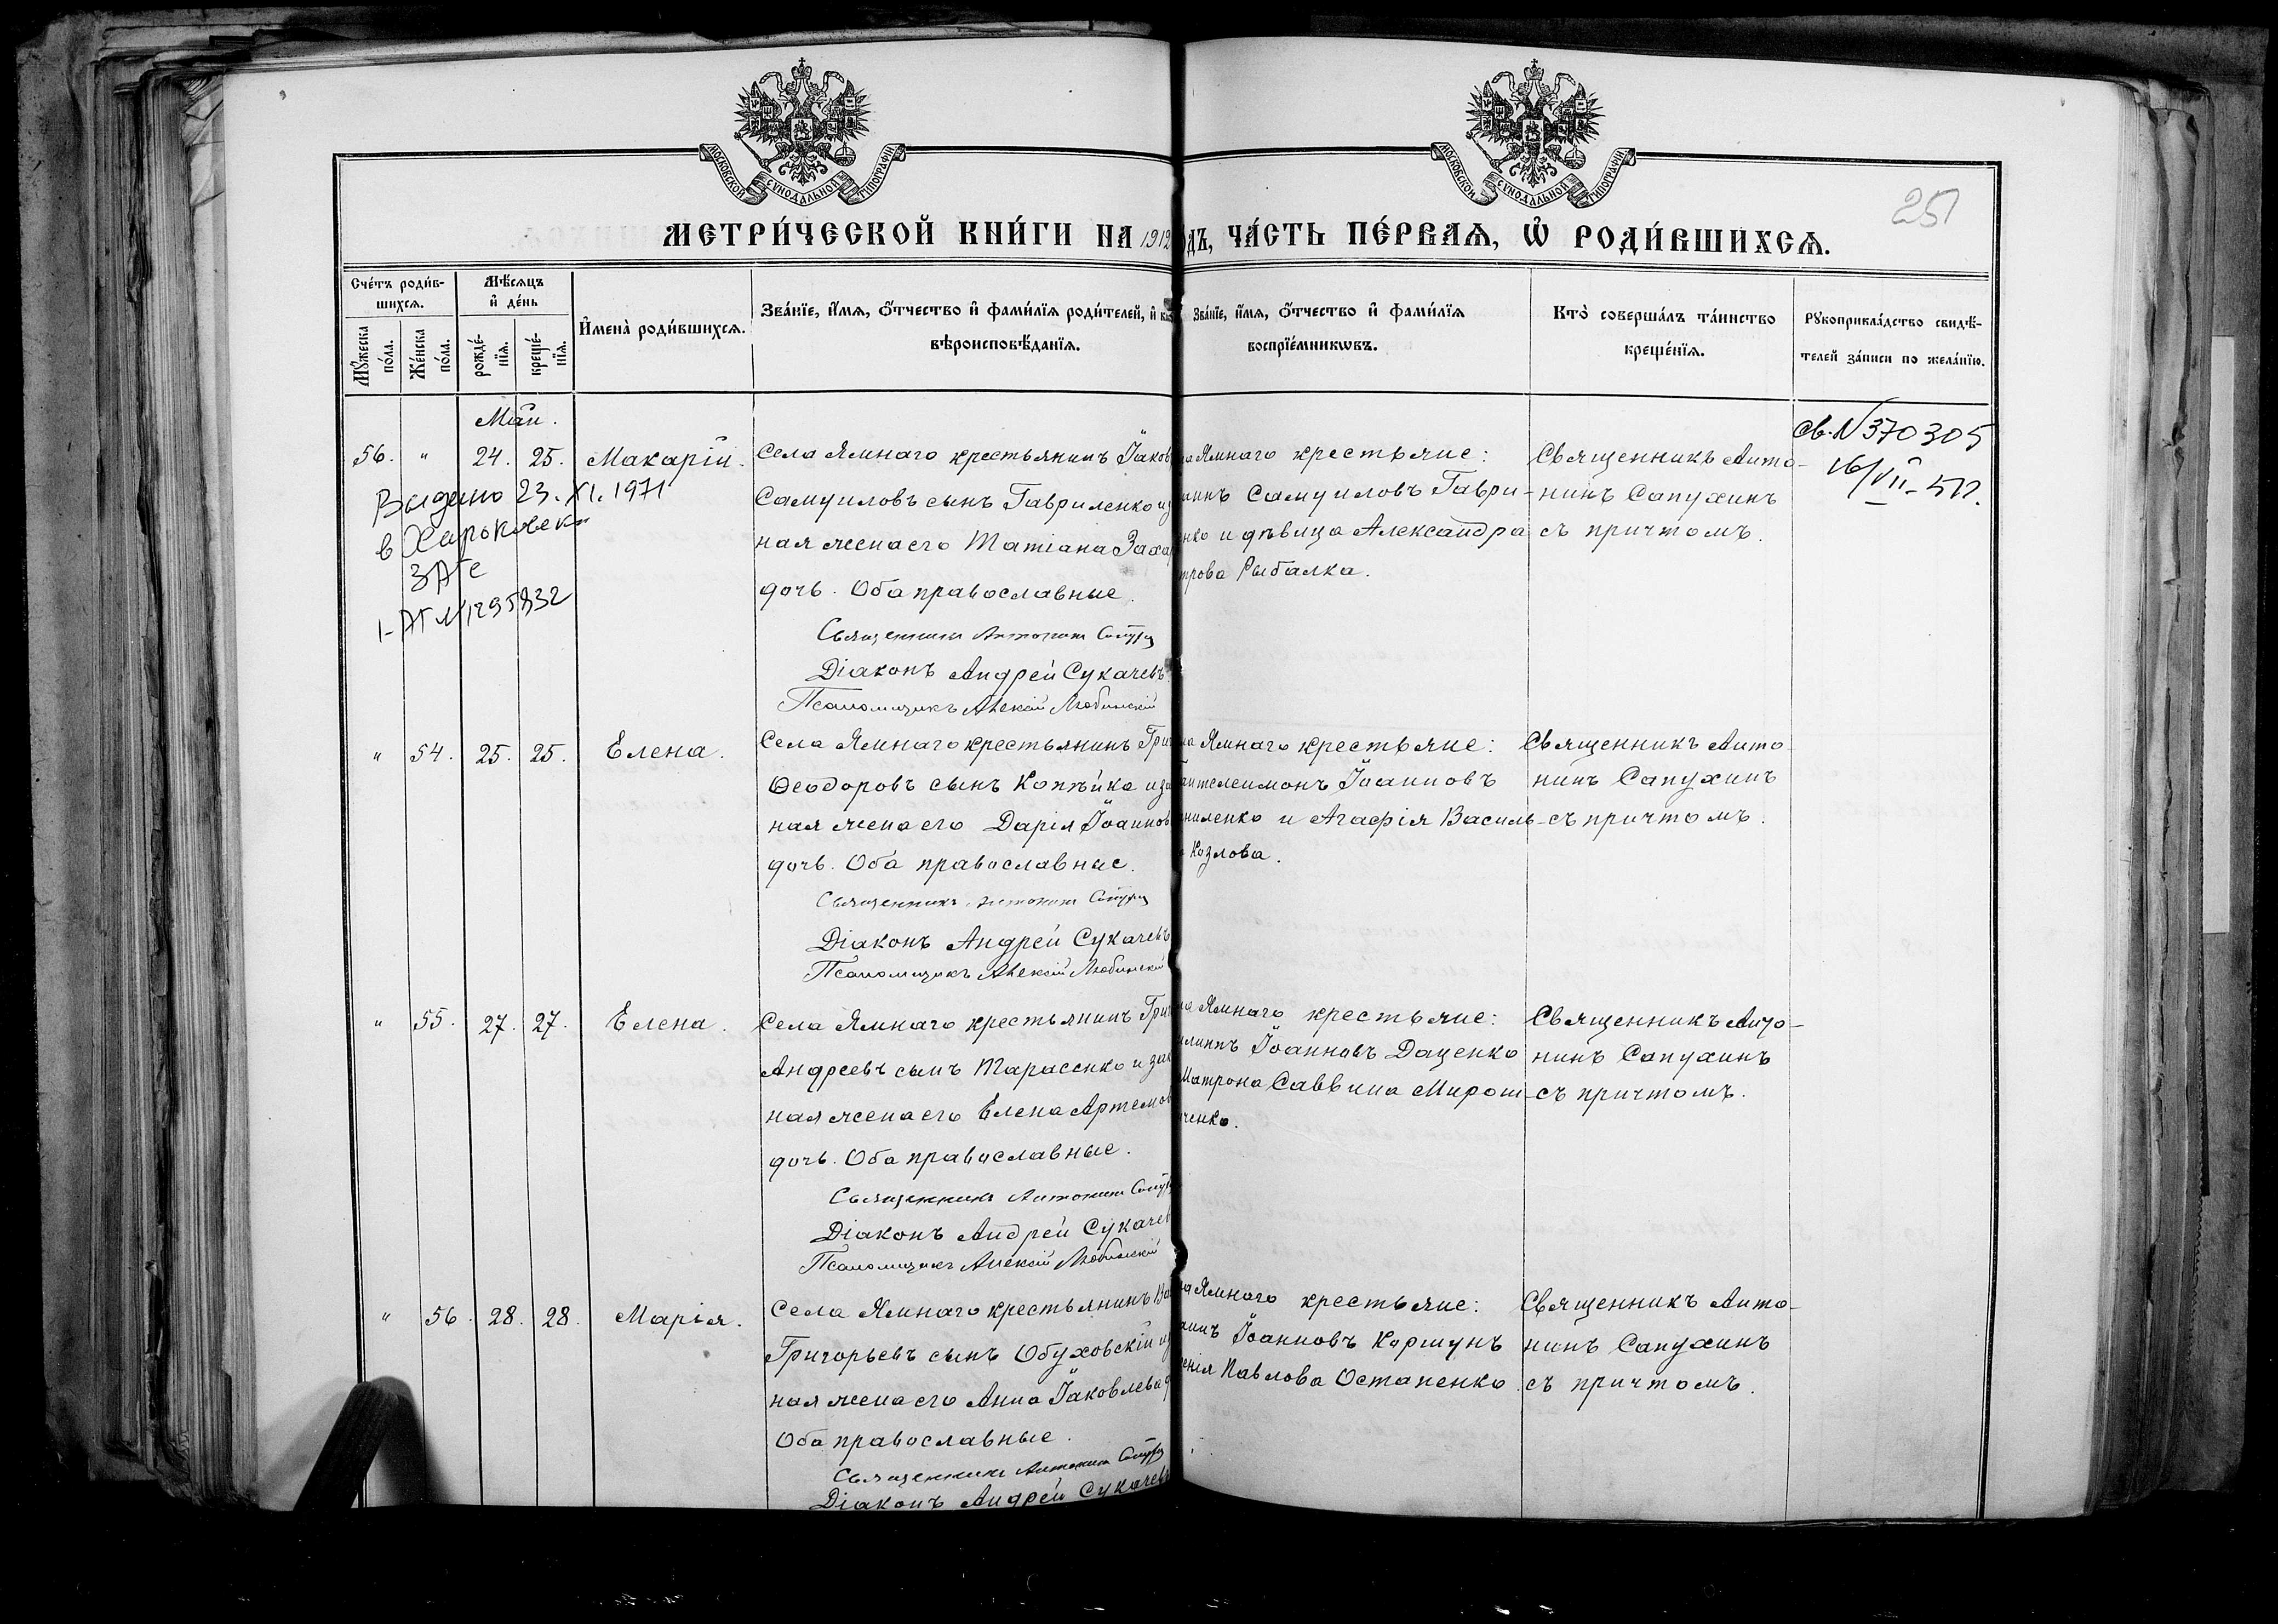 МОСКОВСКОЙ СѴНОДАЛЬНОЙ ТИПОГРАФІИ
МОСКОВСКОЙ СѴНОДАЛЬНОЙ ТИПОГРАФІИ
251
МЕТРИ́ЧЕСКОЙ КНИ́ГИ НА 1912
ДЪ, ЧА́СТЬ ПЕ́РВАѦ, Ѡ҆ РОДИ́ВШИХСѦ.
Сче́тъ роди́в-
шихсѧ.
Мѣ́сѧцъ
и҆ де́нь
Мꙋ́жеска
по́ла.
Же́нска
по́ла.
рожде́-
нїѧ.
креще́-
нїѧ.
И҆мена̀ роди́вшихсѧ.
Зва́нїе, и҆́мѧ, ѻ҆́тчество и҆ фами́лїѧ роди́телей, и҆
вѣроисповѣ́данїѧ.
Зва́нїе, и҆́мѧ, ѻ҆́тчество и҆ фами́лїѧ
воспрїе́мникѡвъ.
Кто̀ соверша́лъ та́инство
креще́нїѧ.
Рꙋкоприкла́дство свидѣ́-
телей за́писи по жела́нїю.
Май.
56. " 24. 25. Макарій.
Села Ямнаго крестьянинъ Іаков
Самуиловъ сынъ Гавриленко и з
ная жена его Татіана Заха
дочь. Оба православные.
Священникъ Антонинъ Сапух
Діаконъ Андрей Сукачевъ.
Псаломщикъ Алексій Любинскій
Выдано 23.XI.1971
в Харьковск
ЗАГС
I-АГ № 1295832
ла Ямнаго крестьяне:
аннъ Самуиловъ Гаври-
енко и дѣвица Александра
трова Рыбалка.
Священникъ Анто-
нинъ Сапухинъ
съ причтомъ.
Св. N 370305
16/VII-
" 54. 25. 25. Елена.
Села Ямнаго крестьянинъ Григ
Ѳеодоровъ сынъ Копѣйка и за
ная жена его Дарія Іоаннов
дочь. Оба православные.
Священникъ Антонинъ Сапух
Діаконъ Андрей Сукачевъ
Псаломщикъ Алексій Любинскій
ла Ямнаго крестьяне:
антелеимонъ Іоанновъ
ниленко и Агафія Василь-
а Козлова.
Священникъ Анто-
нинъ Сапухинъ
съ причтомъ.
" 55. 27. 27. Елена.
Села Ямнаго крестьянинъ Григ
Андреевъ сынъ Тарасенко и зак
ная жена его Елена Артемов
дочь. Оба православные.
Священникъ Антонинъ Сапух
Діаконъ Андрей Сукачев
Псаломщикъ Алексій Любинскій
ла Ямнаго крестьяне:
илиппъ Іоанновъ Даценко
Матрона Саввина Мирош-
иченко.
Священникъ Анто-
нинъ Сапухинъ
съ причтомъ.
" 56. 28. 28. Марія.
Села Ямнаго крестьянинъ Ва
Григорьевъ сынъ Обуховскій и з
ная жена его Анна Іаковлева д
Оба православные.
Священникъ Антонинъ Сапух
Діаконъ Андрей Сукачевъ
ла Ямнаго крестьяне:
аннъ Іоанновъ Коршунъ
сенія Павлова Остапенко.
Священникъ Анто-
нинъ Сапухинъ
съ причтомъ.